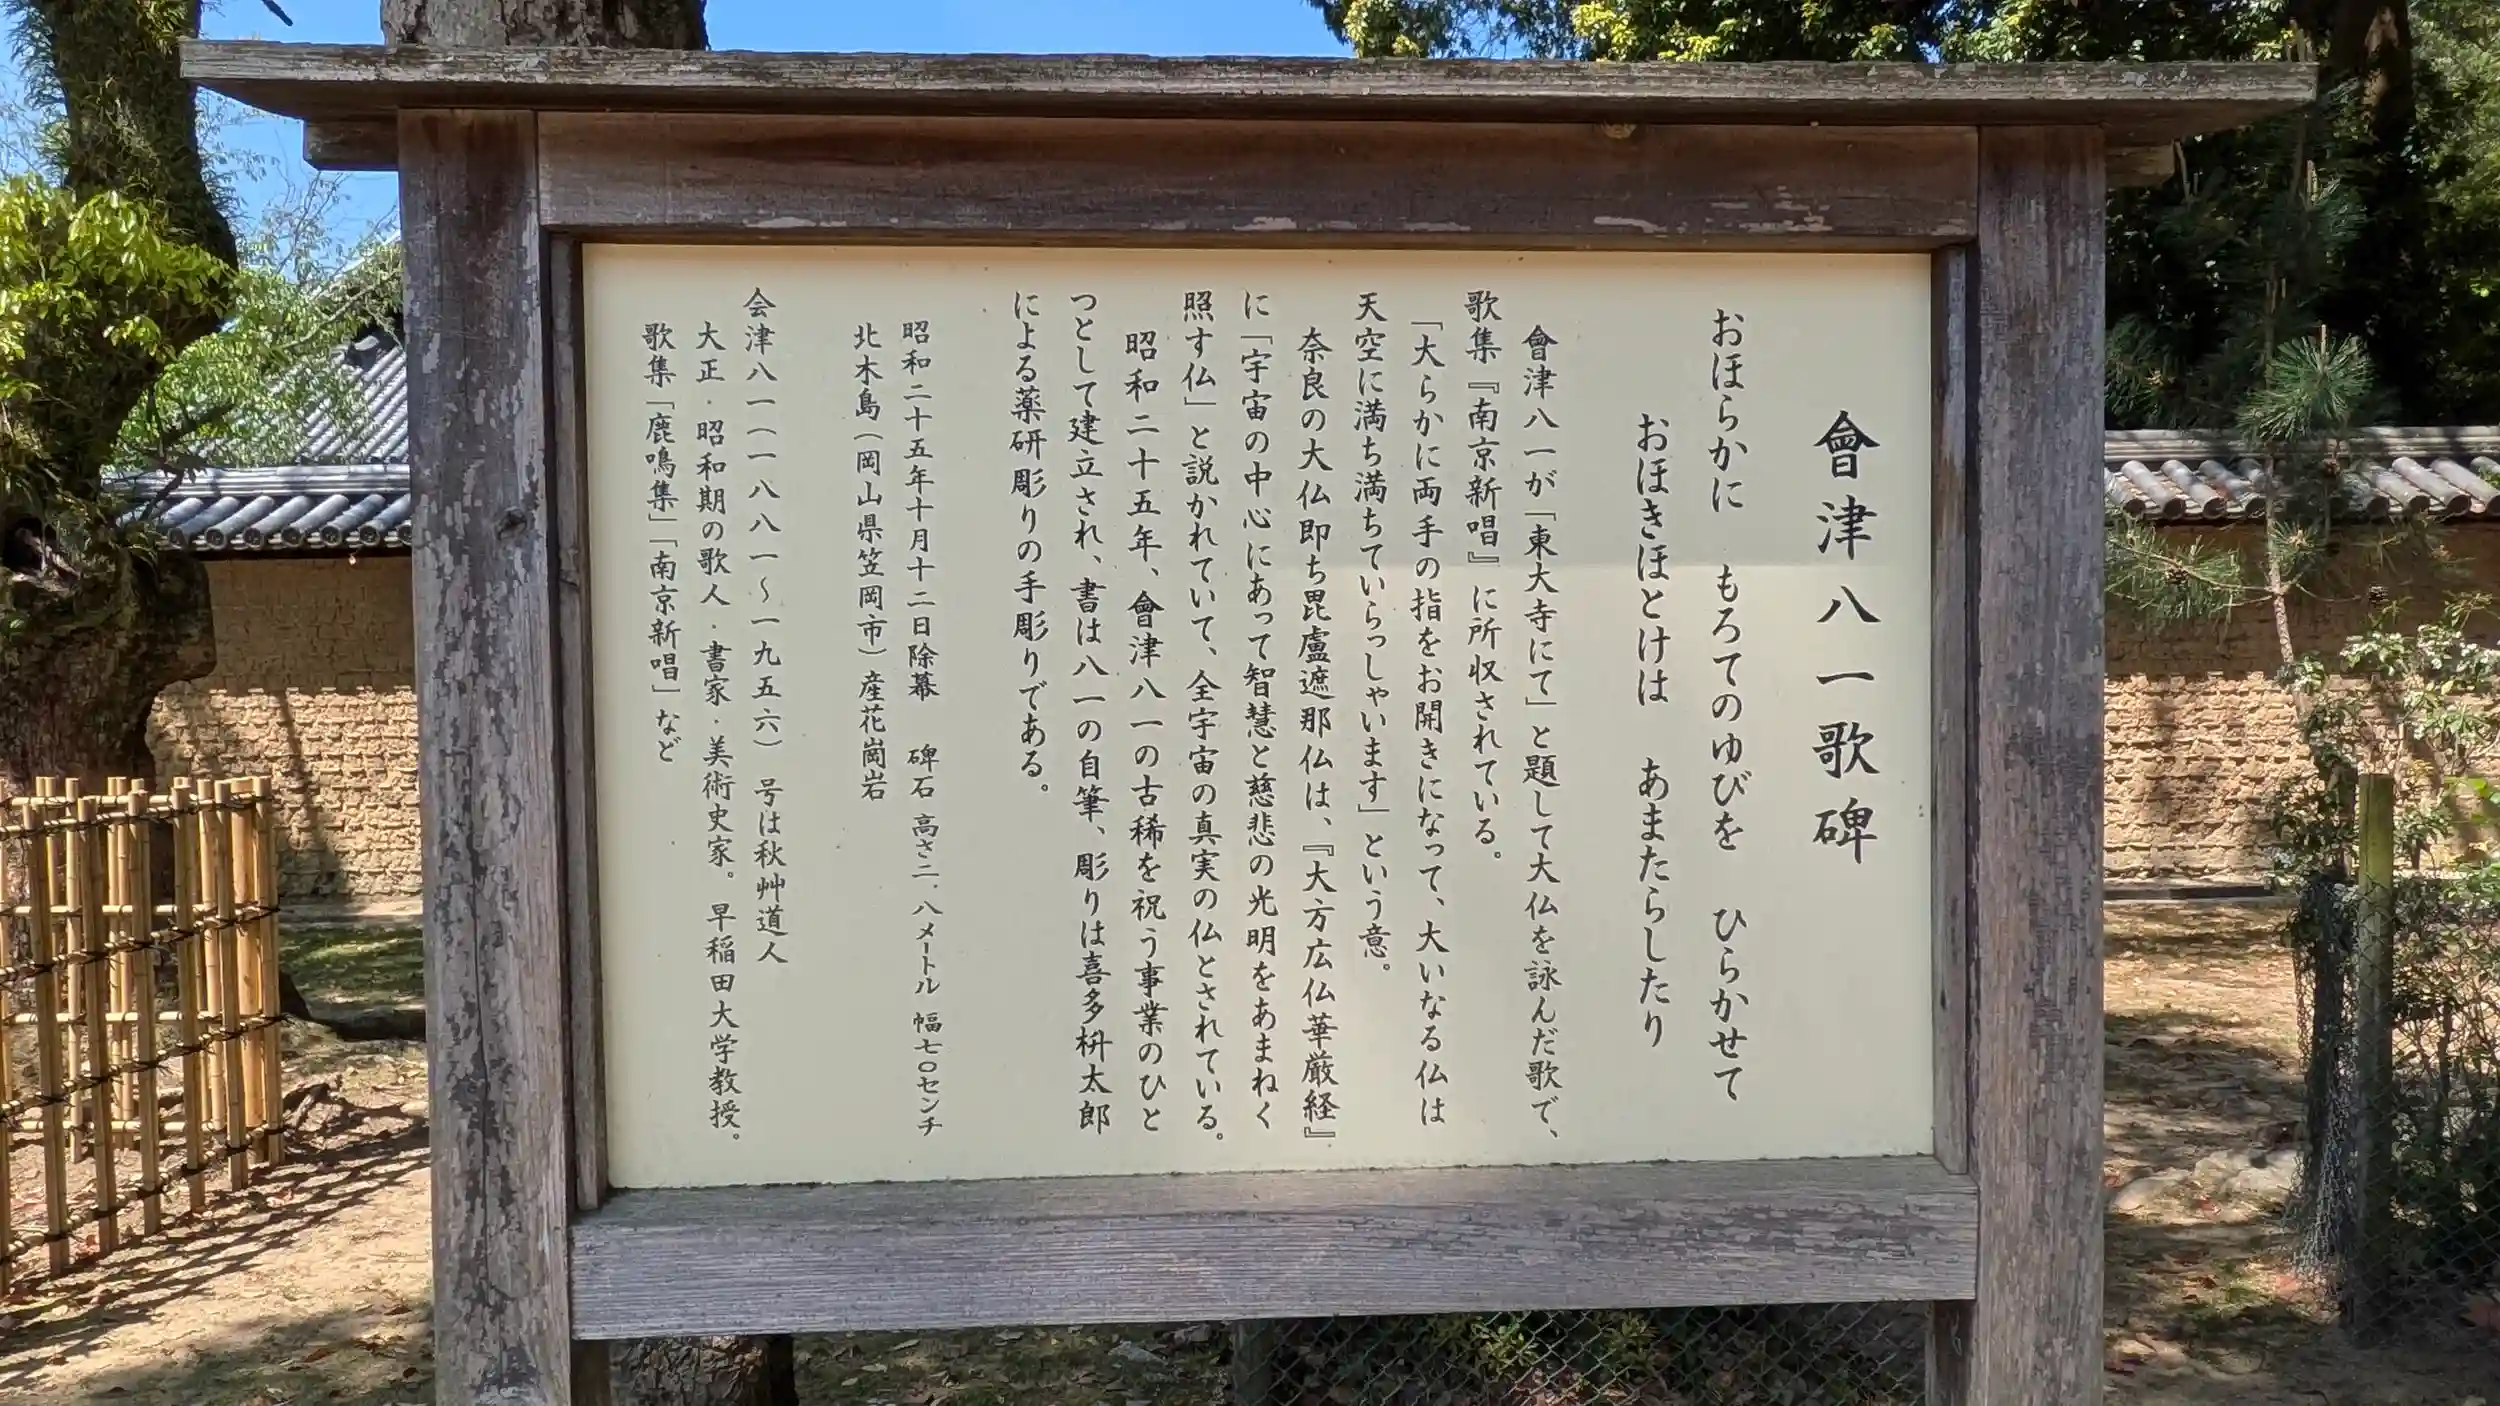 會津八一歌碑
おほらかに　もろてのゆびを　ひらかせて
おほきほとけは　あまたらしたり
會津八一が「東大寺にて」と題して大仏を詠んだ歌で、
歌集『南京新唱』に所収されている。
「大らかに両手の指をお開きになって、大いなる仏は
天空に満ち満ちていらっしゃいます」という意。
奈良の大仏即ち毘盧遮那仏は、『大方広仏華厳経』
に「宇宙の中心にあって智慧と慈悲の光明をあまねく
照す仏」と説かれていて、全宇宙の真実の仏とされている。
昭和二十五年、會津八一の古稀を祝う事業のひと
つとして建立され、書は八一の自筆、彫りは喜多枡太郎
による薬研彫りの手彫りである。
昭和二十五年十月十二日除幕　碑石　高さ二.八メートル　幅七〇センチ
北木島（岡山県笠岡市）産花崗岩
会津八一（一八八一～一九五六）　号は秋艸道人
大正・昭和期の歌人・書家・美術史家。早稲田大学教授。
歌集「鹿鳴集」「南京新唱」など